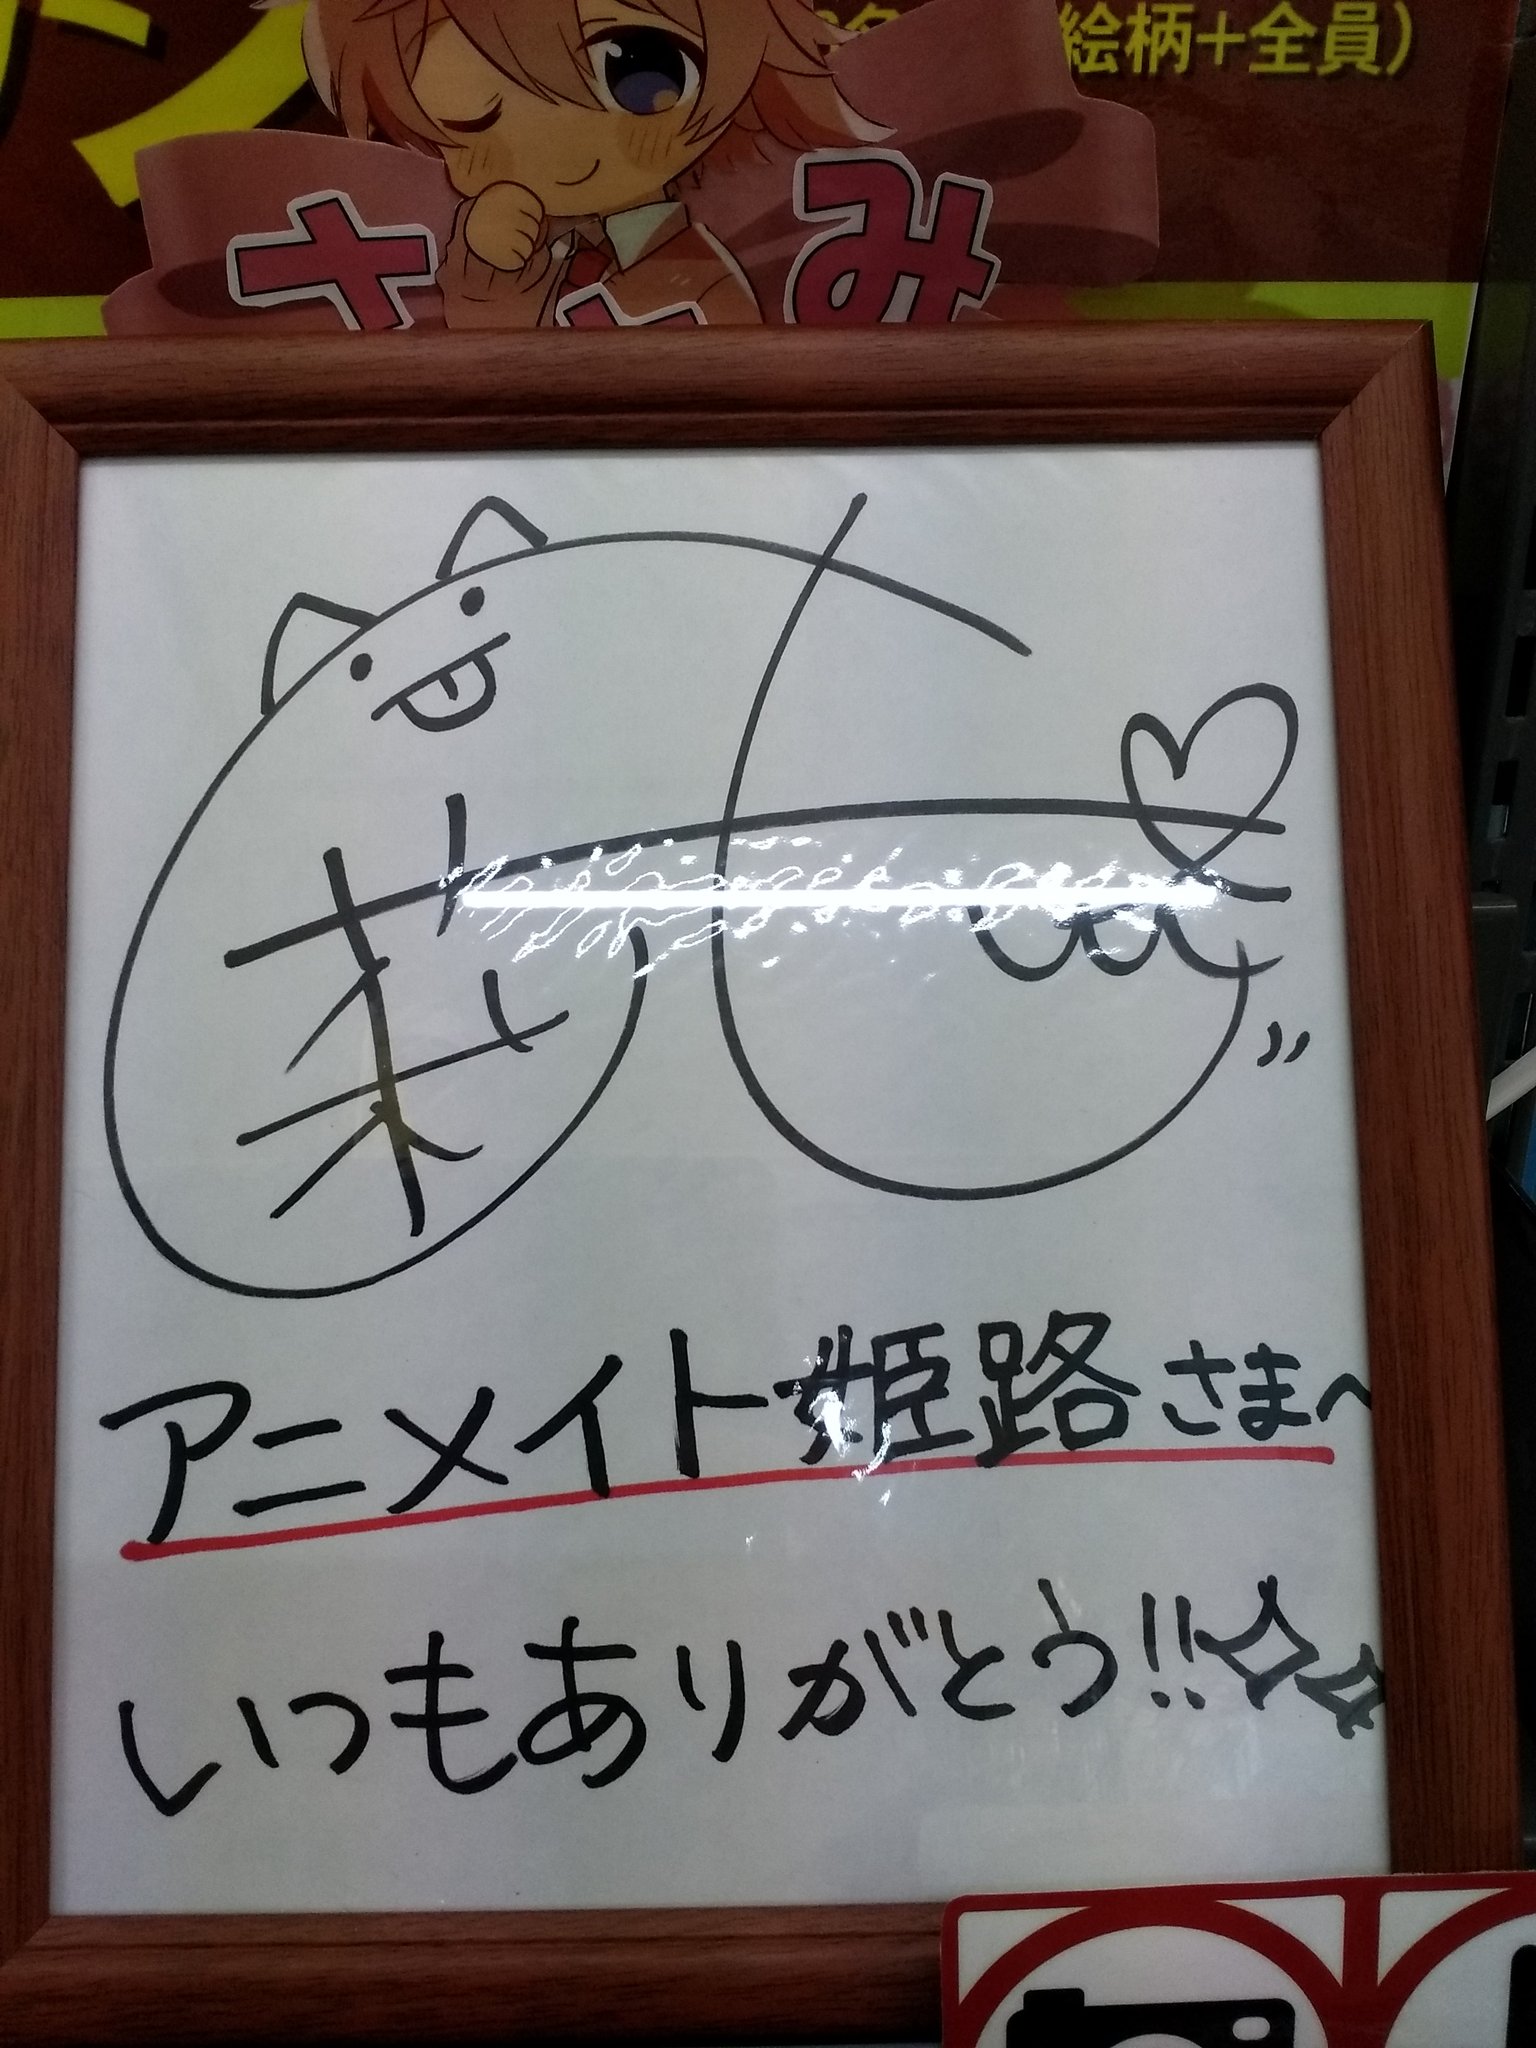 絵柄+全員)
さとみ
アニメイト姫路さまへ
いつもありがとう!!